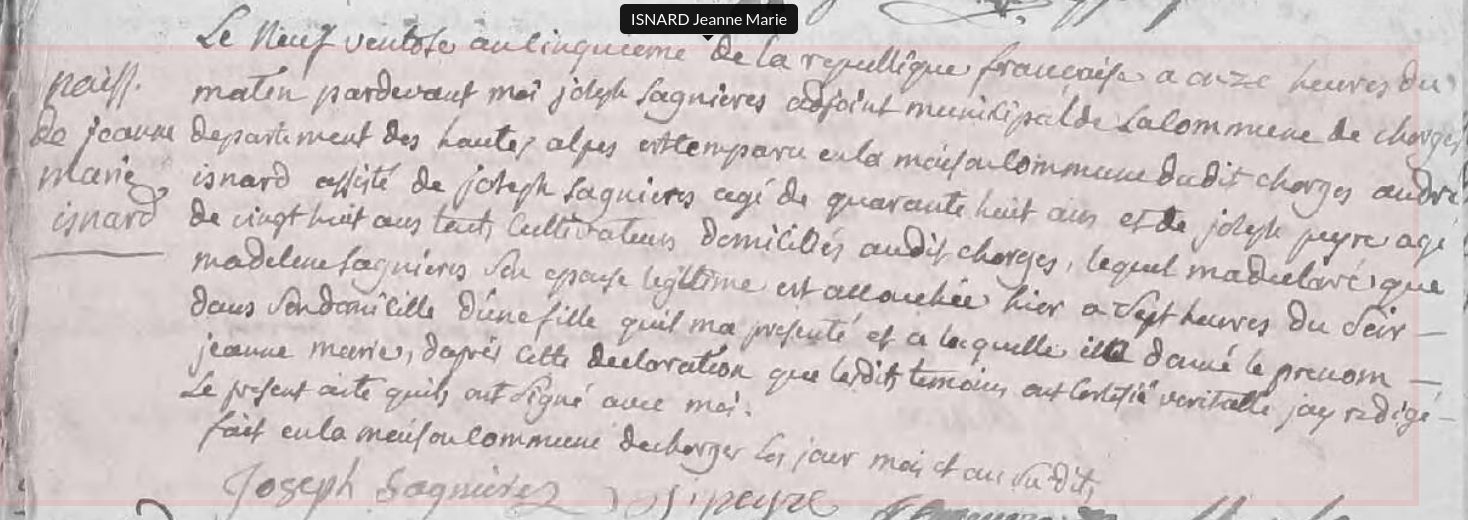 ISNARD Jeanne Marie
Le Neuf ventose an cinquieme de la republique française a onze heures du
matin pardevant moi joseph Sagnieres adjoint municipal de la Commune de chorges
departement des hautes alpes est comparu en la maison Commune dudit chorges andré
isnard assisté de joseph Sagnieres agé de quarante huit ans et de joseph peyre agé
de vingt huit ans touts Cultivateurs domiciliés audit chorges, lequel ma declaré que
madelene Sagnieres Son epouse legitime est accouchée hier a Sept heures du Soir —
dans Son domicille d'une fille quil ma presenté et a laquelle il a donné le prenom —
jeanne marie, daprés Cette declaration que lesdits temoins ont Certifié veritable jay redigé —
Le present acte quils ont Signé avec moi.
fait en la maison Commune de chorges les jour mois et an Susdit,
Joseph Sagnieres J peyre
naiss.
de jeanne
marie
isnard